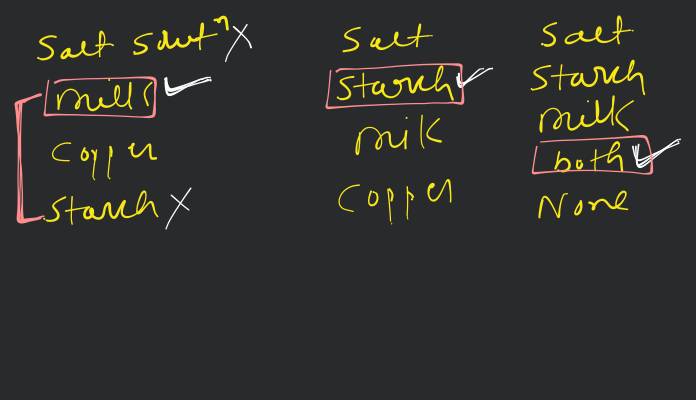 Salt Solutⁿ X
milk ✓
Copper
Starch X
Salt
Starch ✓
milk
Copper
Salt
Starch
milk
both ✓
None